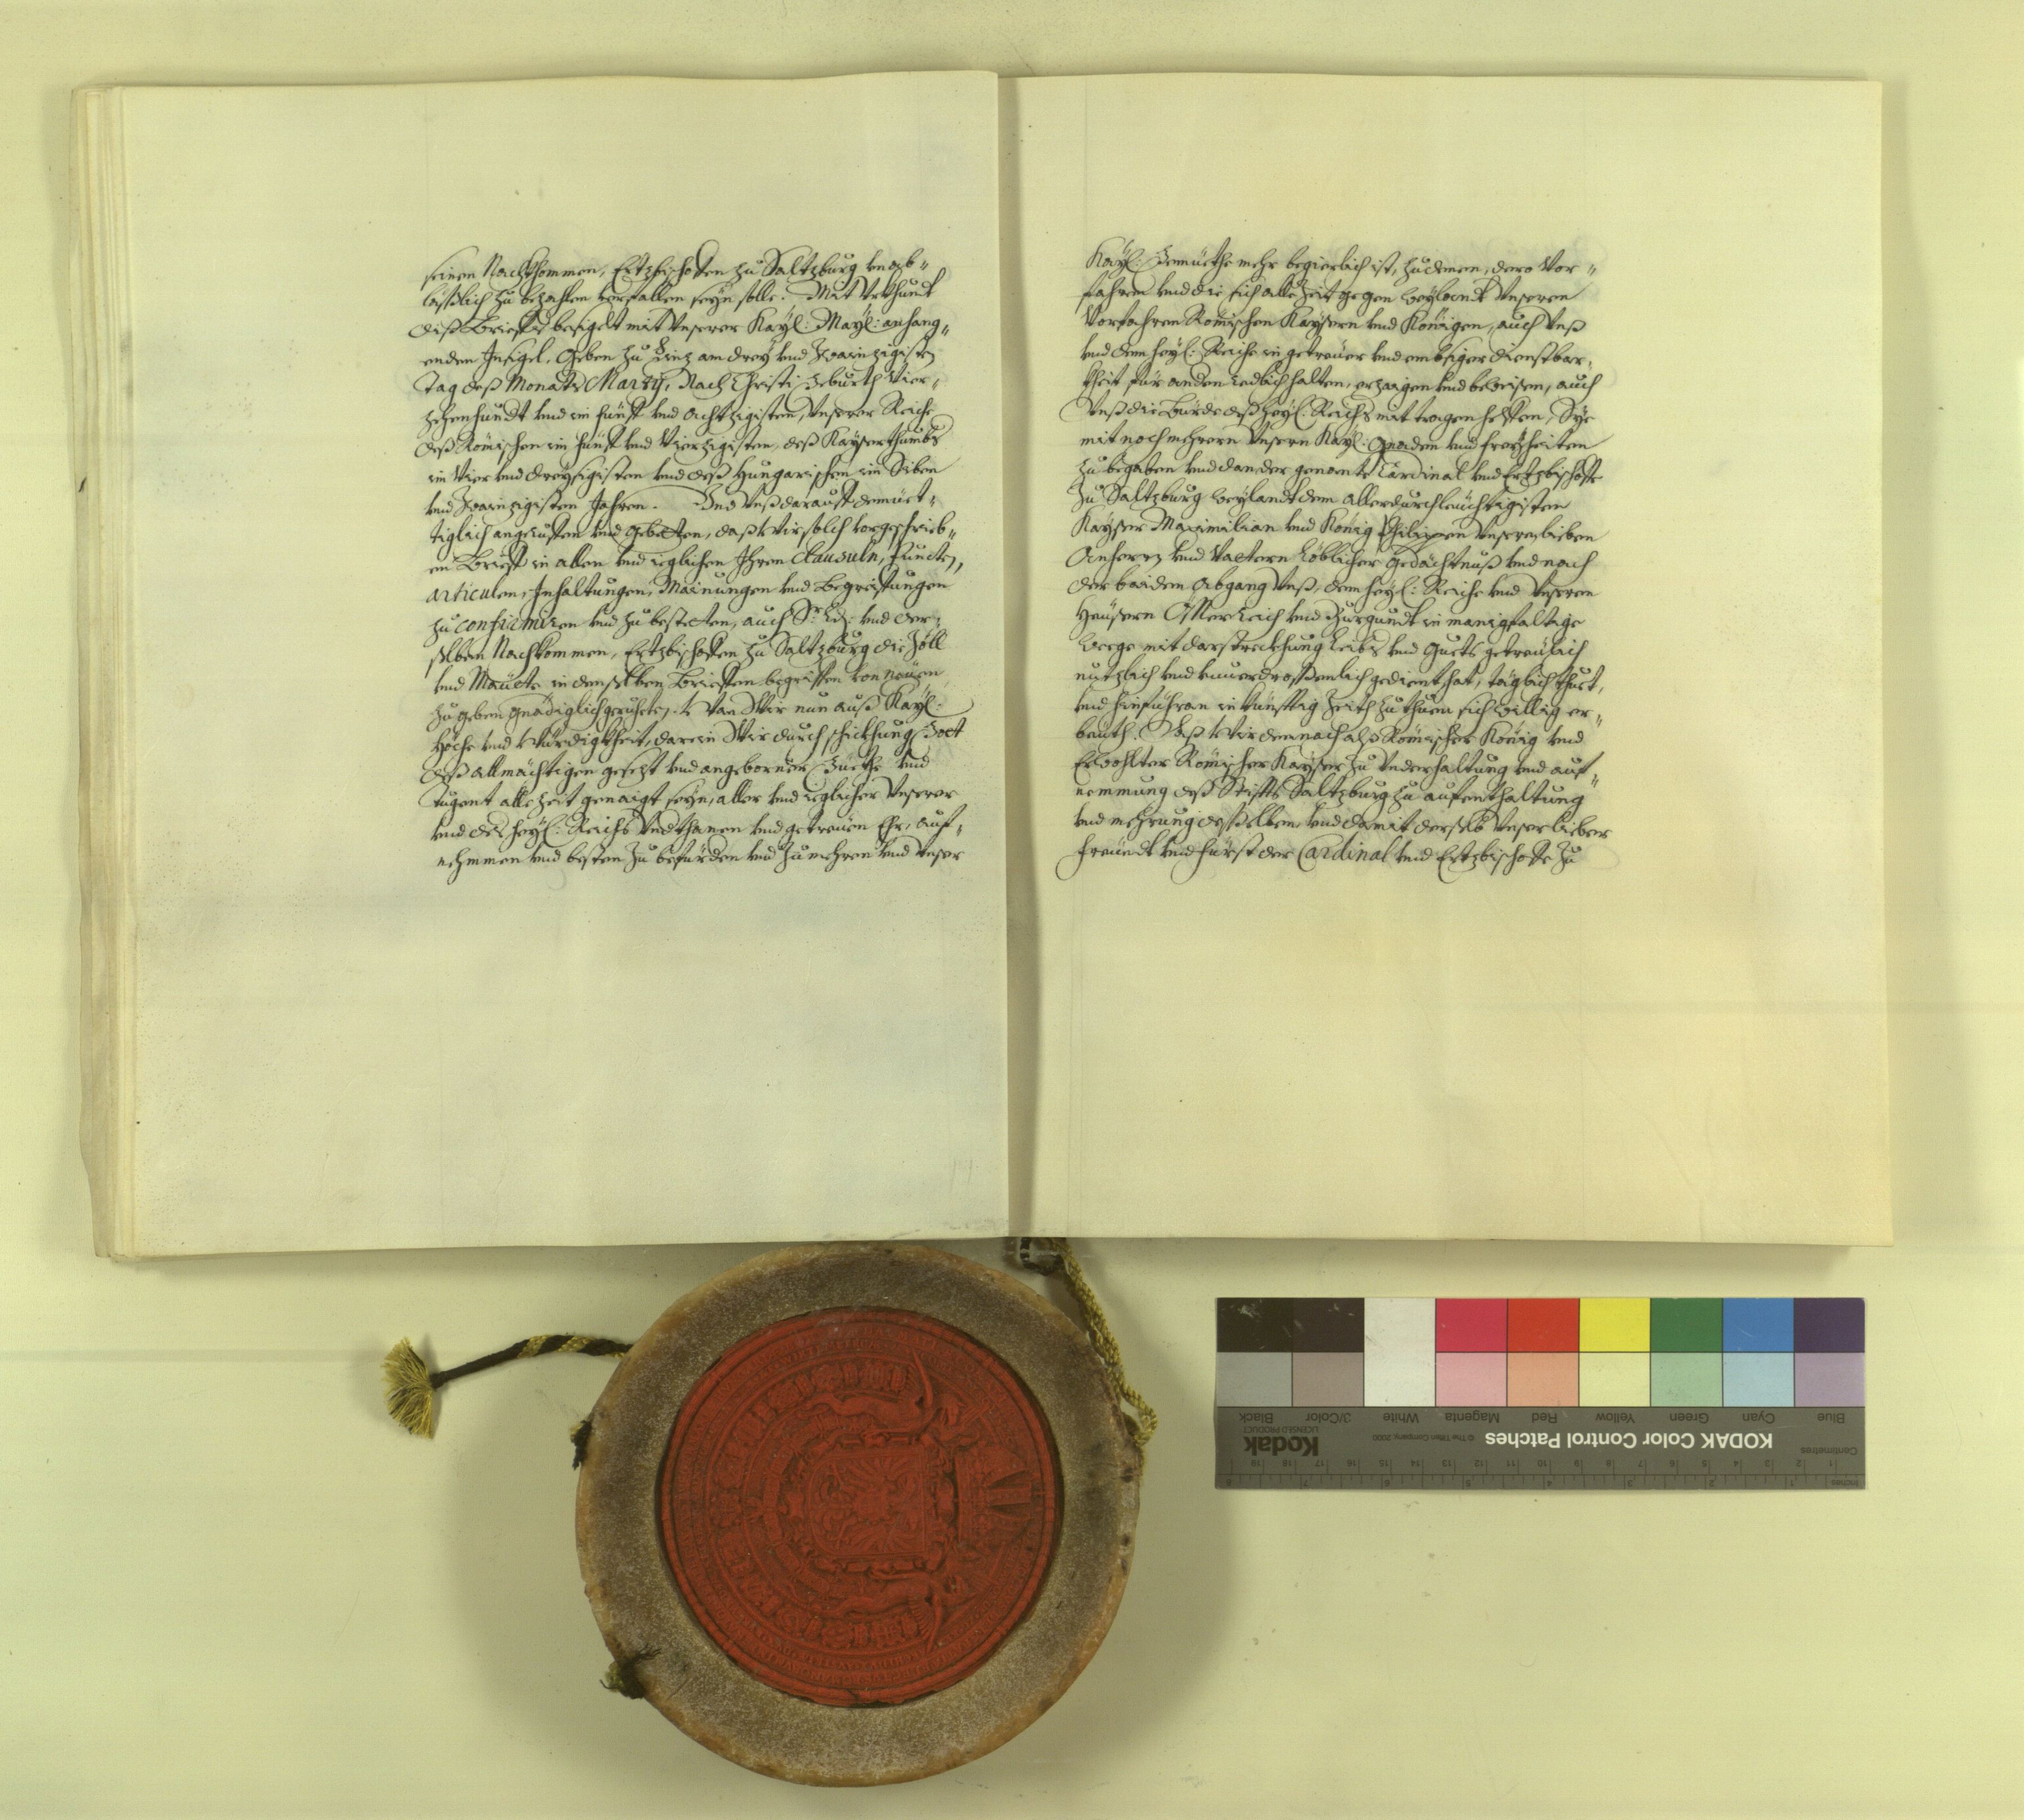 seinen Nachkhommen, Ertzbischoffen zu Saltzburg unab„
läßlich zu bezahlen verfallen seyn solle. Mit Urkhundt
diß Brieffs besigelt mit Unserer Kayl: Mayl: anhang„
enden Insigel, Geben zu Linz am drey und Zwainzigisten
Tag deß Monats Marzy, Nach Christi Geburth Vier„
zehenhundt und im fünff und Achtzigisten, Unserer Reiche
deß Römischen im fünff und Vierzigisten, deß Kayserthumbs
im Vier und dreyssigisten und deß Hungarischen im Siben
und Zwainzigisten Jahren. Und Unß darauff demüet„
tiglich angeruffen und gebetten, daß Wir solch vorgeschrieb„
en Brieff in allen und ieglichen Ihren Clausuln, Puncten,
articulen, Inhaltungen, Mainungen und Begreiffungen
zu confirmiren und zu bestetten, auch Sr. Ld: und der„
selben Nachkommen, Ertzbischoffen zu Saltzburg die Zöll
und Mäuth in denselben Brieffen begriffen von neuem
zu geben gnädiglich geruheten. Wan Wir nun auß Kayl:
Höche und Würdigkheit, darein Wir durch schickhung Gott
deß allmächtigen gesezt und angeborner Güethe und
Tugent alle Zeit genaigt seyn, aller und ieglicher Unserer
und des heyl: Reichs Underthanen und getreuen Ehr, auf„
nehmmen und besten zu befürden und zu mehren und Unser
Kayl: Gemüethe mehr begierlich ist, zu denen, dero Vor„
fahren und die sich alle Zeit gegen weylandt Unseren
Vorfahren Römischen Kaysern und Königen, auch Unß
und dem heyl: Reiche in getreuer und embsiger dienstbar„
kheit für anden redlich halten, erzaigen und beweisen, auch
Unß die Bürde deß heyl: Reichs mit tragen helffen, Sye
mit noch mehrern Unsern Kayl: Gnaden und freyheiten
zu begaben und dan der genante Cardinal und Ertzbischoffe
zu Saltzburg weylandt dem Allerdurchleüchtigisten
Kayser Maximilian und König Philippen Unseren lieben
Anherrn und Vattern Löblicher Gedächtnuß und nach
der baiden Abgang Unß, dem heyl: Reiche und Unseren
Heüsern Össterreich und Burgundt in manigfaltige
weege mit darstreckhung Leibs und Guets getreülich
nutzlich und unverdrossenlich gedient hat, täglich thuet,
und hinführan in künfftig Zeith zu thuen sich willig er„
beuth. Daß Wir demnach alß Römischer König und
Erwöhlter Römischer Kayser zu Underhaltung und auf„
nemmung deß Stiffts Saltzburg zu aufenthaltung
und mehrung desselben, und damit derselb Unser lieber
Freündt und fürst der Cardinal und Ertzbischoffe zu
KODAK Color Control Patches
© The Tiffen Company, 2000
Kodak
LICENSED PRODUCT
Centimetres
Inches
Blue
Cyan
Green
Yellow
Red
Magenta
White
3/Color
Black